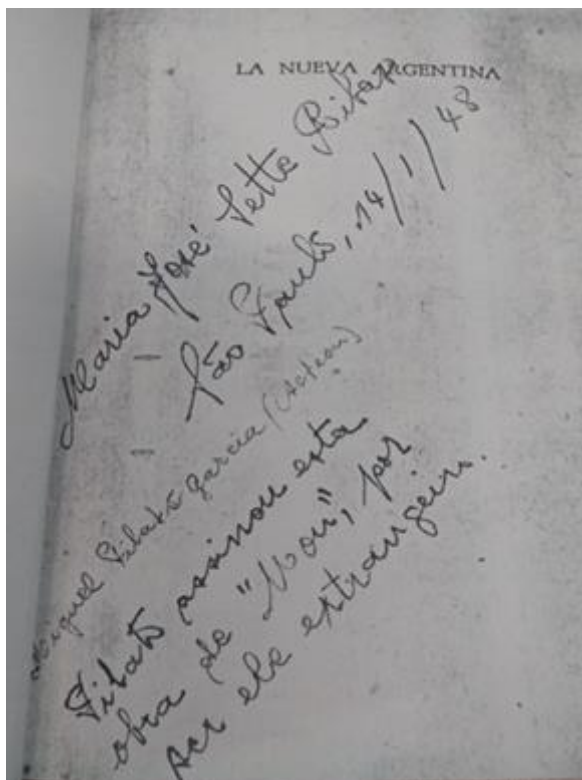 LA NUEVA ARGENTINA
Maria José Sette Ribas
São Paulo, 14/1/48
Miguel Pilato Garcia
Pilato assinou esta
obra de "Mon", por
ser ele estrangeiro.